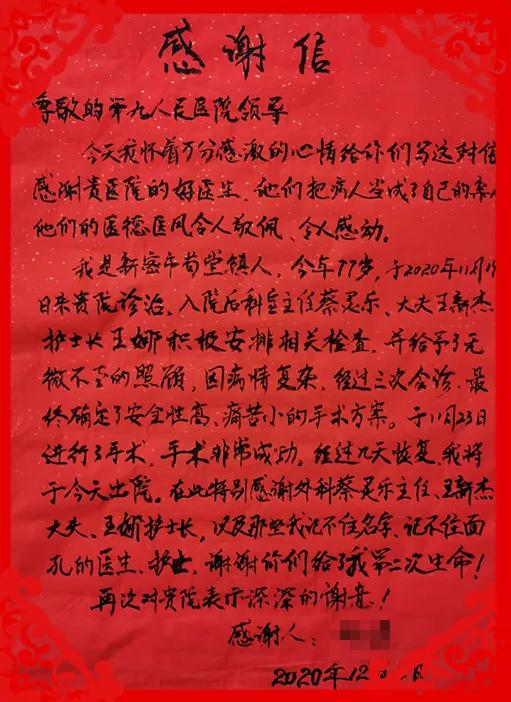 感谢信
尊敬的第九人民医院领导
今天我怀着万分感激的心情给你们写这封信
感谢贵医院的好医生、他们把病人当成了自己的亲人
他们的医德医风令人敬佩、令人感动。
我是新密市苟堂镇人，今年77岁，于2020年11月19
日来贵院诊治。入院后科室主任蔡灵乐、大夫王新杰
护士长王娜积极安排相关检查，并给予了无
微不至的照顾，因病情复杂，经过三次会诊、最
终确定了安全性高、痛苦小的手术方案。于11月23日
进行了手术，手术非常成功。经过几天恢复、我将
于今天出院。在此特别感谢外科蔡灵乐主任、王新杰
大夫、王娜护士长，以及那些我记不住名字、记不住面
孔的医生、护士、谢谢你们给了我第二次生命！
再次对贵院表示深深的谢意！
感谢人：
2020年12 日